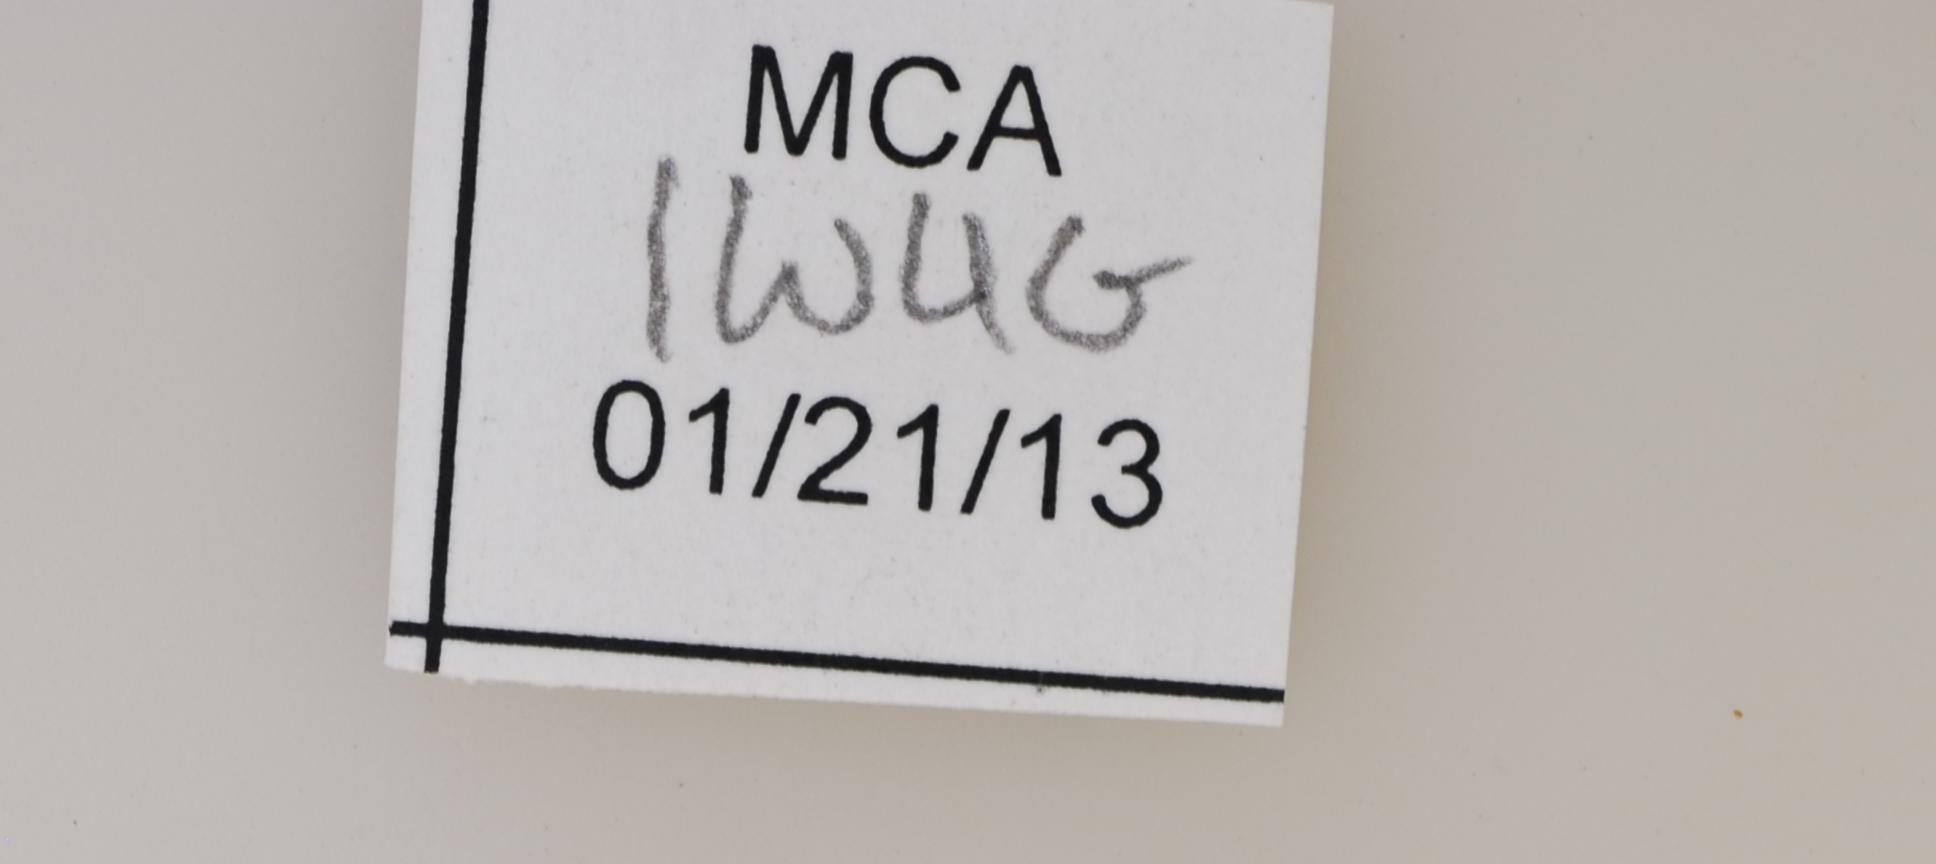 MCA
1W4G
01/21/13